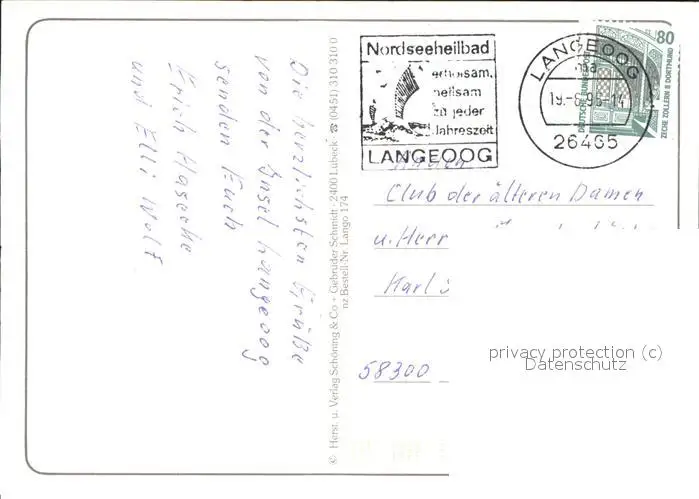 Die herzlichsten Grüße
von der Insel Langeoog
senden Euch
Erich
und Elli Wolf
© Herst. u. Verlag Schöning & Co + Gebrüder Schmidt · 2400 Lübeck · ☎ (0451) 310 310 0
nz Bestell-Nr. Lango 174
Nordseeheilbad
erholsam,
heilsam
zu jeder
Jahreszeit
LANGEOOG
LANGEOOG
19.-
26465
80
DEUTSCHE BUNDESPOST
ZECHE ZOLLERN II DORTMUND
Club der älteren Damen
u. Herr
Karl
58300
privacy protection (c)
Datenschutz